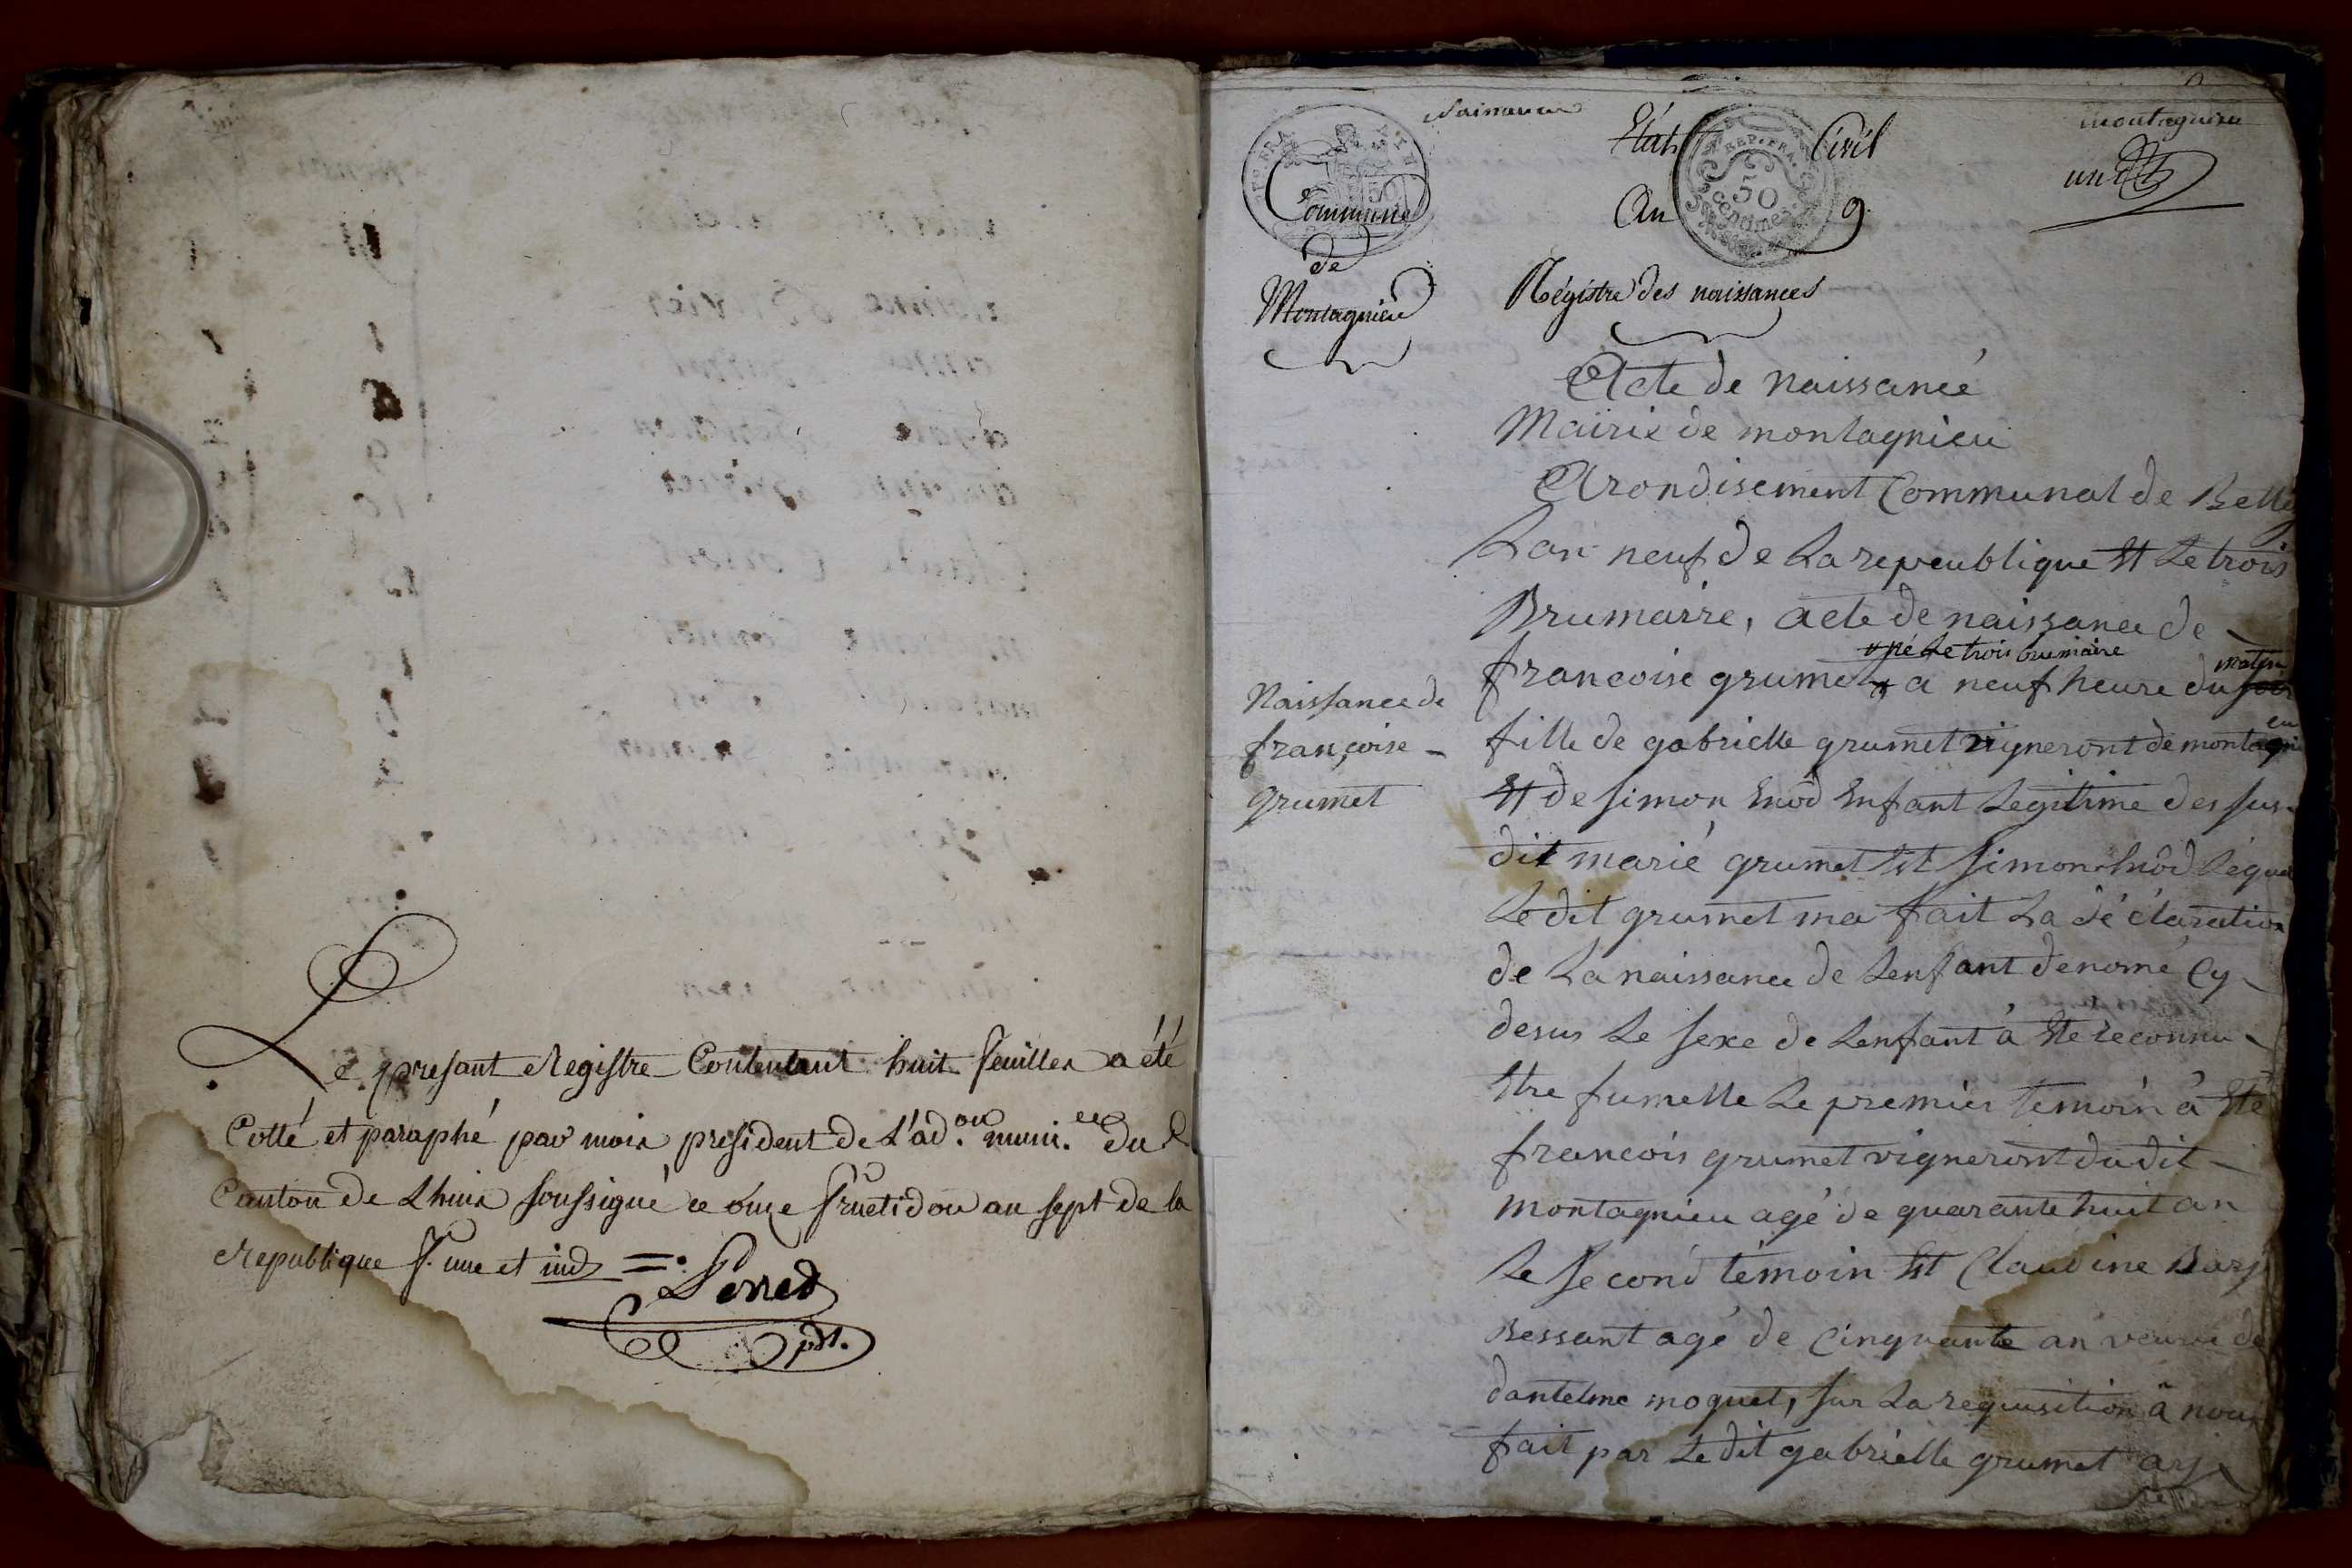 Le presant Registre Contentant huit feuilles a été
Cotté et paraphé par mois president de L'ad.on muni.ee du
Canton de Lhuis soussigné ce onze fructidor an sept de la
Republique f. une et ind =.
pdt.
Naissances
Montagnieu
Etat Civil
REP. FRA.
50 centimes
An 9
un
Commune
de
Montagnieu
Régistre des naissances
Acte de Naissancé
Mairie de montagnieu
Arondisement Communal de Belley
Lan neuf de La repeublique Et Le trois
Brumaire, acte de naissance de
né Le trois brumaire matin
francoise grumet a neuf heure du soir
Naissance de
françoise
grumet
fille de gabrielle grumet vigneront de montagnieu
Et de simon Enod Enfant Legitime des sus
dit marié grumet Et simon Enod Lequel
Le dit grumet ma fait La déclaration
de La naissance de Lenfant denomé Cy
desus Le sexe de Lenfant à Ete reconnu
Etre fumelle Le premier temoin à Eté
francois grumet vigneront dudit
montagnieu agé de quarante huit an
Le second témoin Est Claudine
agé de Cinquante an veuve de
dantelme moquet, sur La requisition à nous
fait par Le dit gabrielle grumet